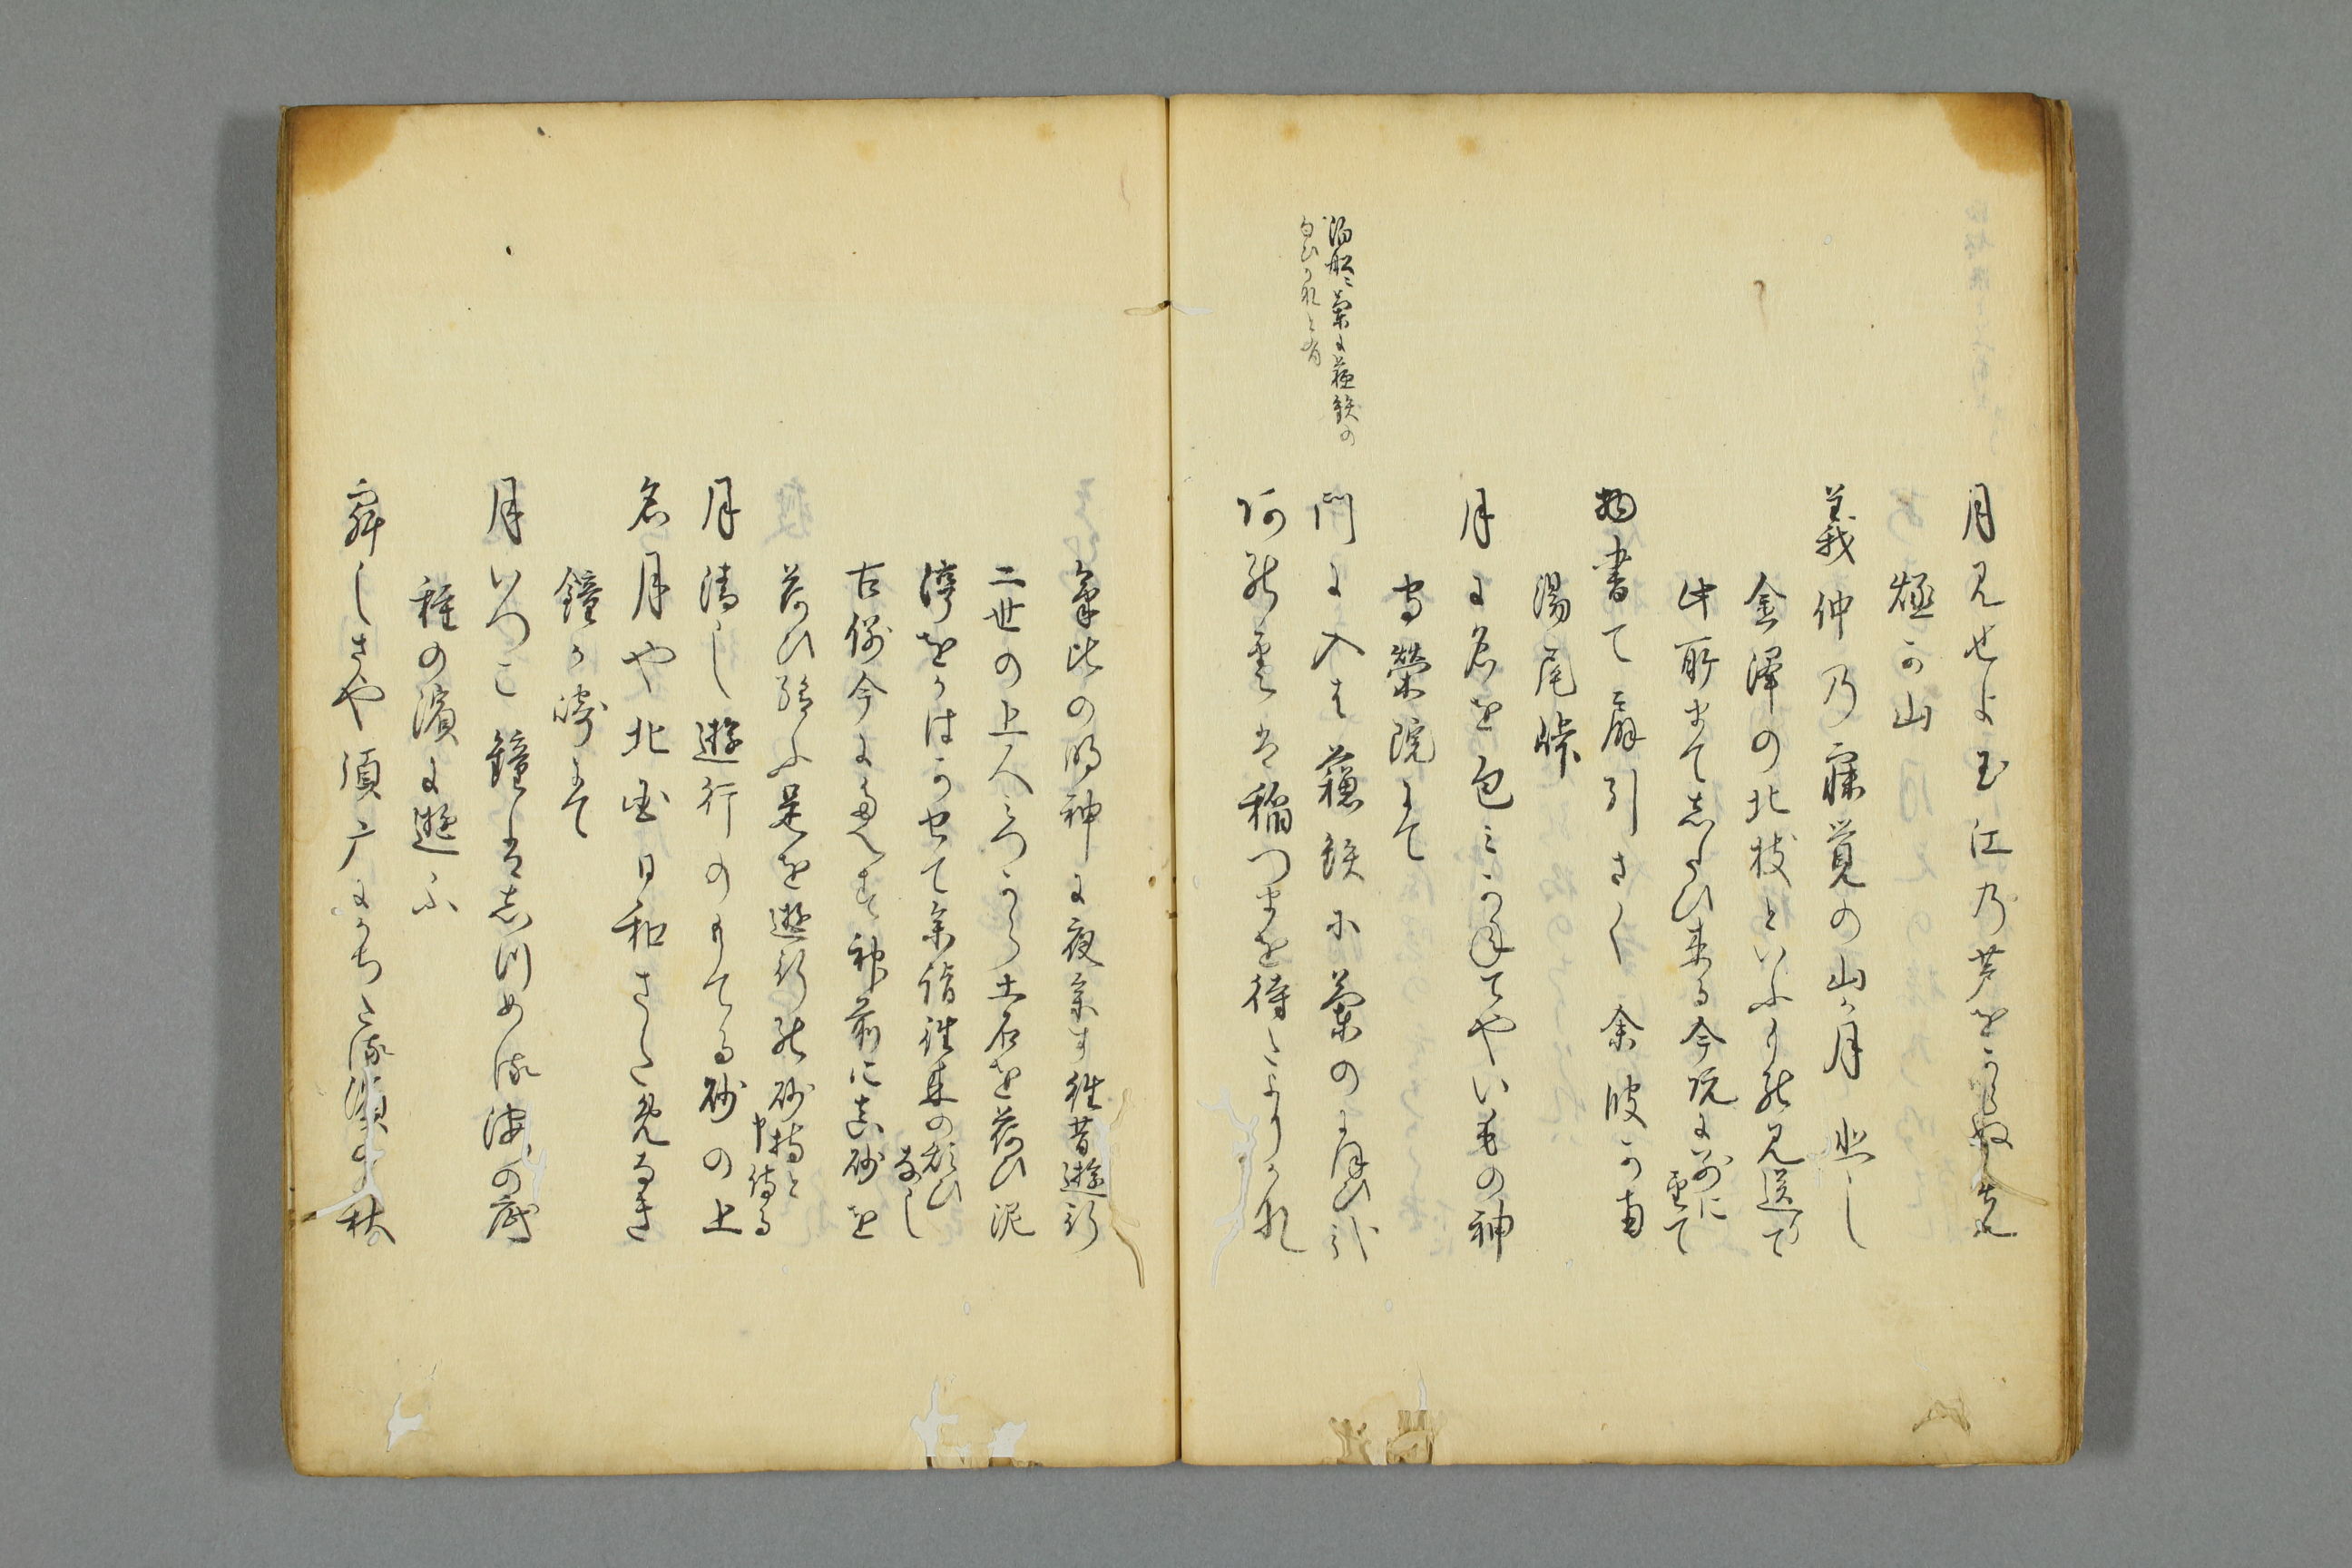 月見せよ玉江の芦をからぬ先
燧か山
義仲の寐覚の山か月悲し
金澤の北枝といふもの見送て
此所まてしたひ来る今既に別に
望て
物書て扇引さく余波かな
湯尾峠
月に名を包みかねてやいもの神
守榮院にて
門に入は蘓鉄に蘭のにほひ哉
泊船ニ蘭に蘓鉄の
匂ひかなと有
あの雲は稲つまを待たよりかな
氣比の明神に夜参す往昔遊行
二世の上人みつから土石を荷ひ泥
渟をかはかせて参詣往来の煩ひ
なし
古例今にたえす神前に真砂を
荷ひ給ふ是を遊行の砂持と
申侍る
月清し遊行のもてる砂の上
名月や北国日和さため なき
鐘か崎にて
月いつこ鐘はしつめる海の底
種の濱に遊ふ
寂しさや須广にかちたる濱の秋